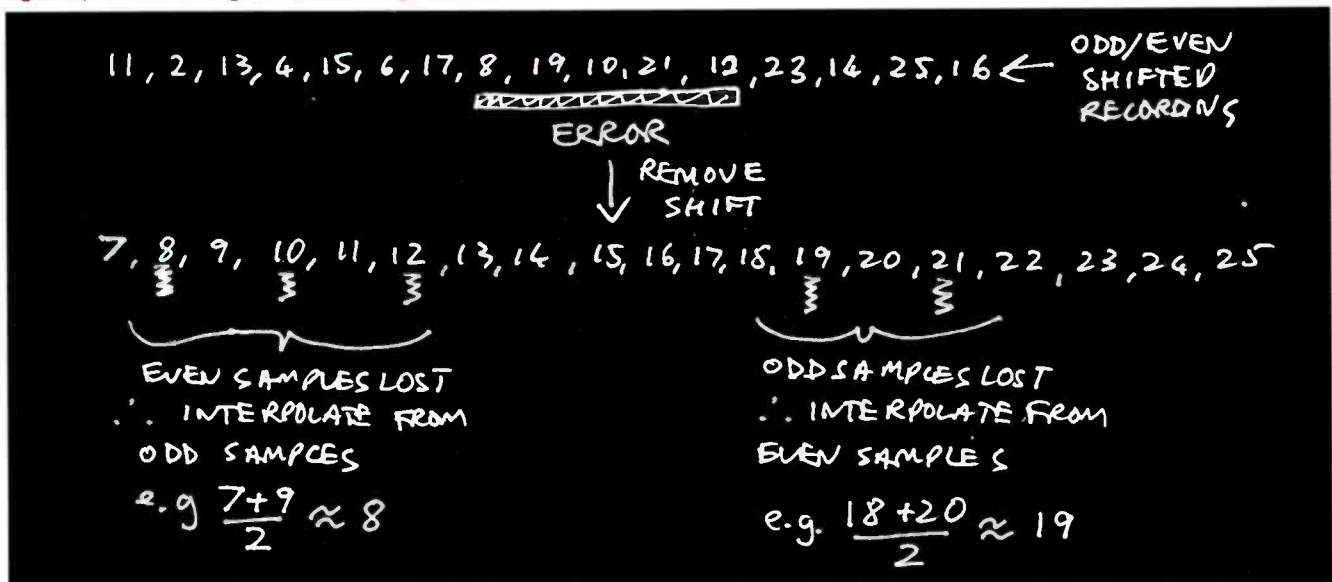 11, 2, 13, 4, 15, 6, 17, 8, 19, 10, 21, 12, 23, 14, 25, 16 ← ODD/EVEN
SHIFTED
RECORDING
ERROR
↓ REMOVE
SHIFT
7, 8, 9, 10, 11, 12, 13, 14, 15, 16, 17, 18, 19, 20, 21, 22, 23, 24, 25
EVEN SAMPLES LOST
∴ INTERPOLATE FROM
ODD SAMPLES
e.g 7+9/2 ≈ 8
ODD SAMPLES LOST
∴ INTERPOLATE FROM
EVEN SAMPLES
e.g. 18+20/2 ≈ 19